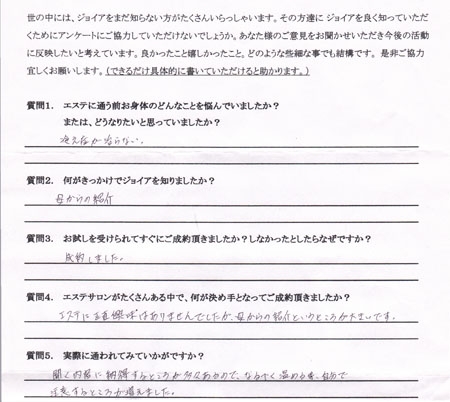 世の中には、ジョイアをまだ知らない方がたくさんいらっしゃいます。その方達に ジョイアを良く知っていただ
くためにアンケートにご協力していただけないでしょうか。あなた様のご意見をお聞かせいただき今後の活動
に反映したいと考えています。良かったこと嬉しかったこと。どのような些細な事でも結構です。 是非ご協力
宜しくお願いします。(できるだけ具体的に書いていただけると助かります。)
質問1. エステに通う前お身体のどんなことを悩んでいましたか?
または、どうなりたいと思っていましたか?
冷え性が治らない。
質問2. 何がきっかけでジョイアを知りましたか?
母からの紹介
質問3. お試しを受けられてすぐにご成約頂きましたか?しなかったとしたらなぜですか?
成約しました。
質問4. エステサロンがたくさんある中で、何が決め手となってご成約頂きましたか?
エステに正直興味はありませんでしたが、母からの紹介というところが大きいです。
質問5. 実際に通われてみていかがですか?
聞く内容に納得するところが多々あるので、なるべく温める事、自分で
注意するところが増えました。